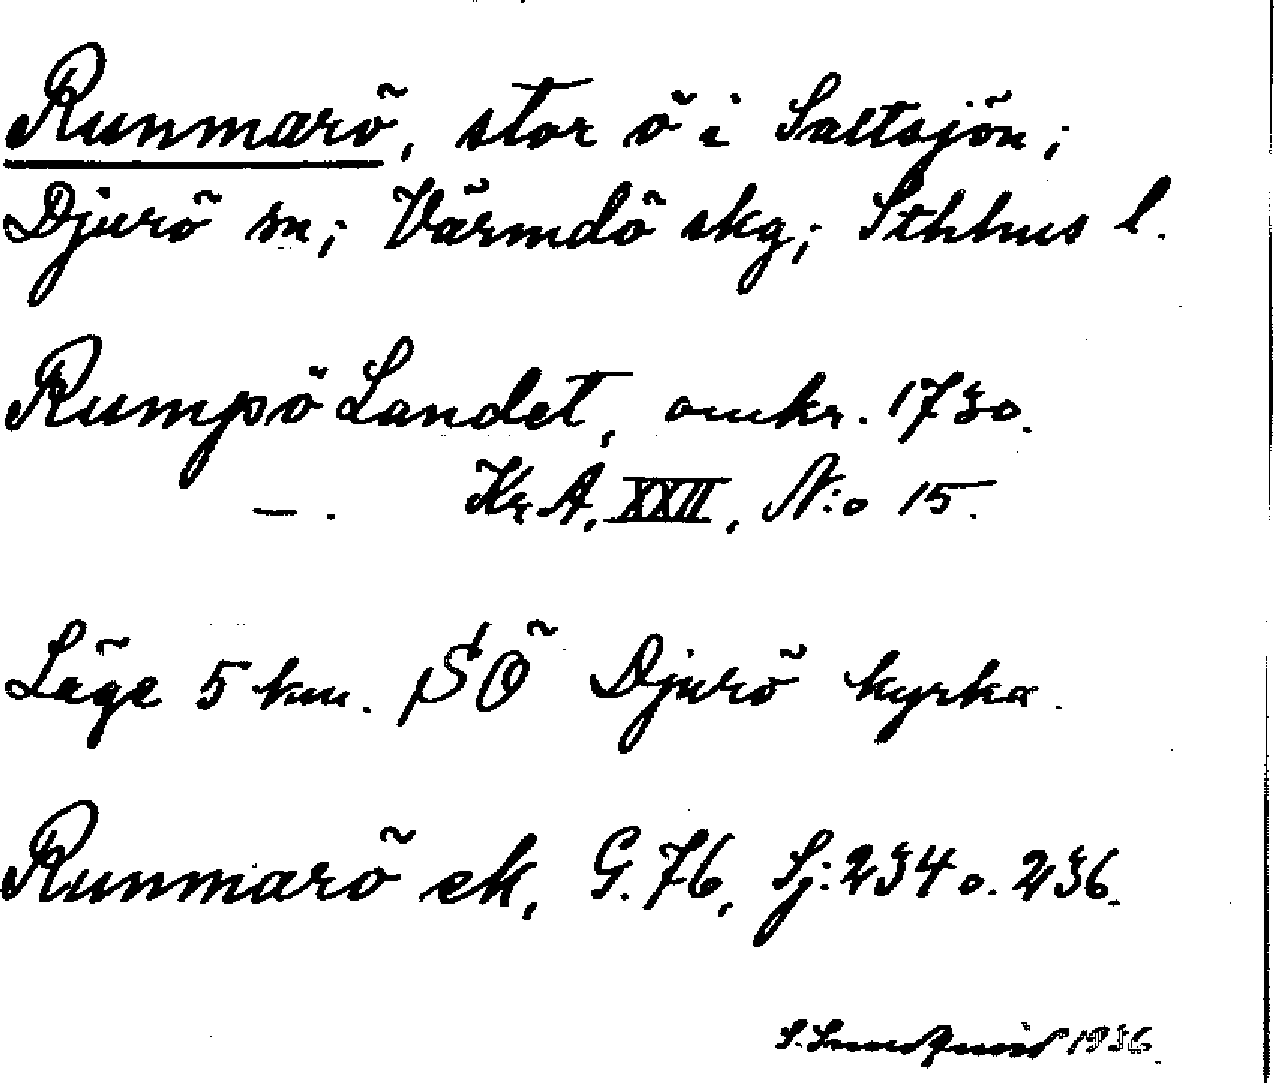 Runmarö, stor ö i Saltsjön;
Djurö sn; Värmdö skg; Sthlms l.
Rumpö Landet, omkr. 1730.
— . Kr.A. XXII, N:o 15.
Läge 5 km. SÖ Djurö kyrka.
Runmarö ek, G.76, Sj:234 o. 236.
S. Lundqvist 1936.